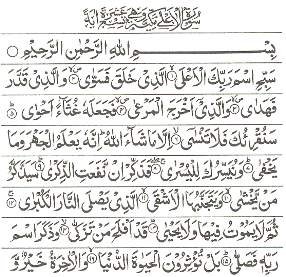 سورة الأعلى مكية وهي تسع عشرة آية
بِسْمِ اللهِ الرَّحْمٰنِ الرَّحِيْمِ
سَبِّحِ اسْمَ رَبِّكَ الْاَعْلَى ۙ الَّذِيْ خَلَقَ فَسَوّٰى ۙ وَالَّذِيْ قَدَّرَ
فَهَدٰى ۙ وَالَّذِيْٓ اَخْرَجَ الْمَرْعٰى ۙ فَجَعَلَهٗ غُثَآءً اَحْوٰى ۙ
سَنُقْرِئُكَ فَلَا تَنْسٰٓى ۙ اِلَّا مَا شَآءَ اللهُ ۚ اِنَّهٗ يَعْلَمُ الْجَهْرَ وَمَا
يَخْفٰى ۙ وَنُيَسِّرُكَ لِلْيُسْرٰى ۙ فَذَكِّرْ اِنْ نَّفَعَتِ الذِّكْرٰى ۙ سَيَذَّكَّرُ
مَنْ يَّخْشٰى ۙ وَيَتَجَنَّبُهَا الْاَشْقَى ۙ الَّذِيْ يَصْلَى النَّارَ الْكُبْرٰى ۚ
ثُمَّ لَا يَمُوْتُ فِيْهَا وَلَا يَحْيٰى ۚ قَدْ اَفْلَحَ مَنْ تَزَكّٰى ۙ وَذَكَرَ اسْمَ
رَبِّهٖ فَصَلّٰى ۚ بَلْ تُؤْثِرُوْنَ الْحَيٰوةَ الدُّنْيَا ۖ وَالْاٰخِرَةُ خَيْرٌ وَّ